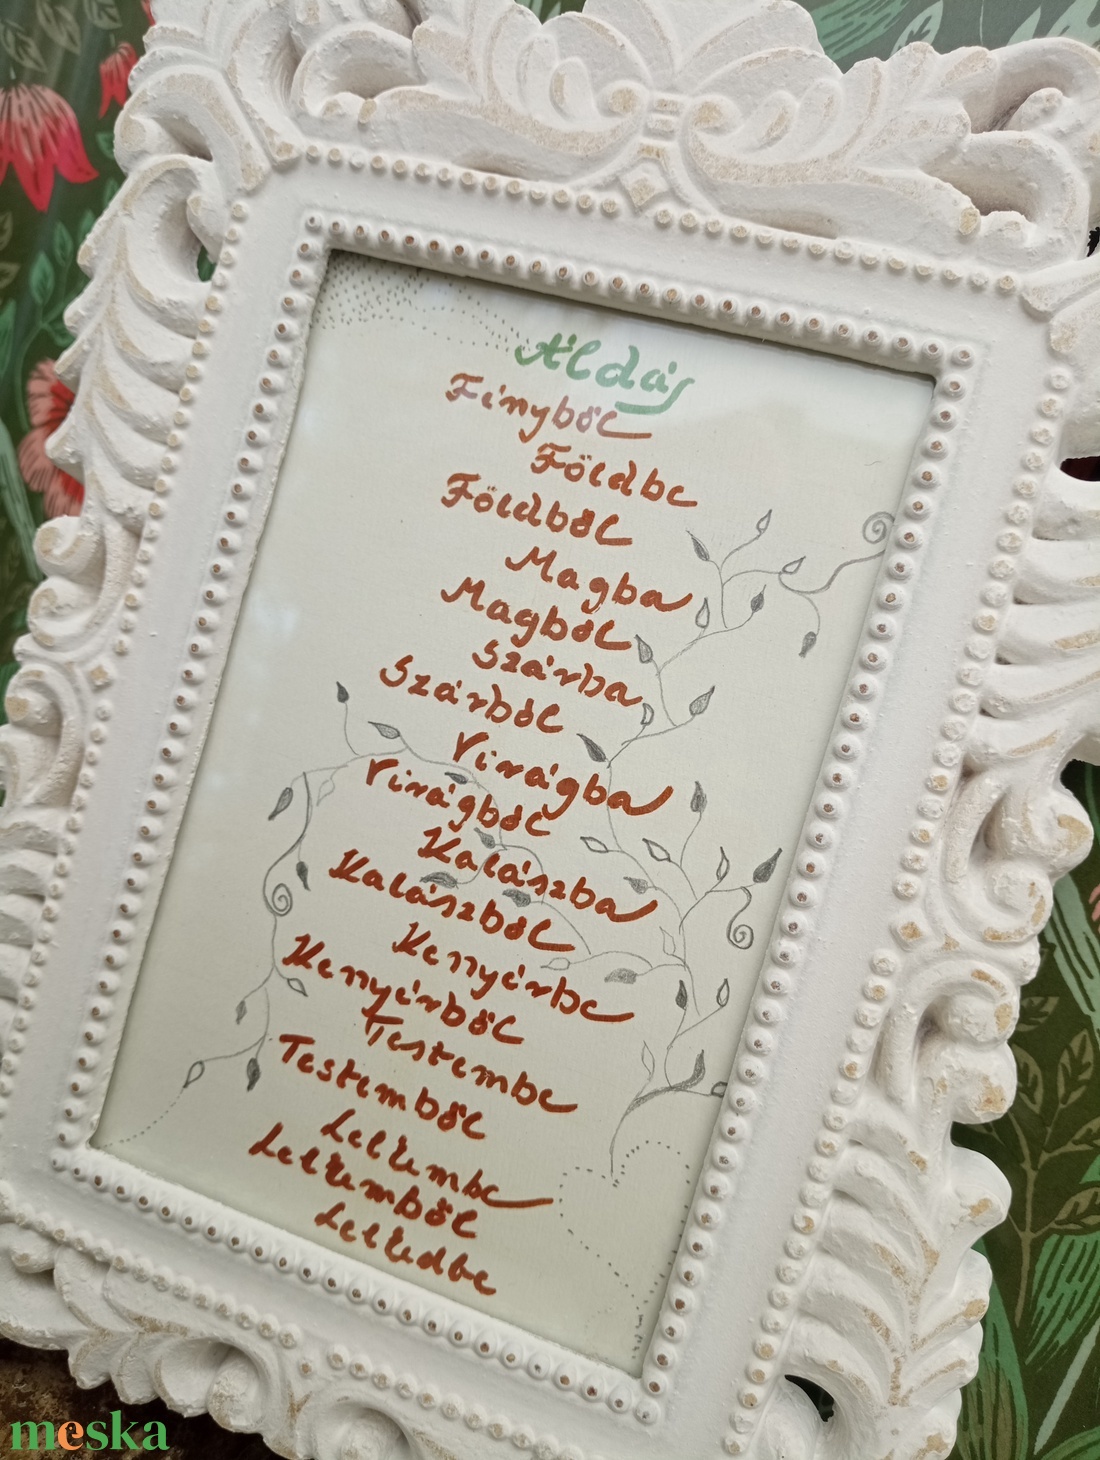 Áldás
Fényből
Földbe
Földből
Magba
Magból
Szárba
Szárból
Virágba
Virágból
Kalászba
Kalászból
Kenyérbe
Kenyérből
Testembe
Testemből
Lelkembe
Lelkemből
Lelkedbe
meska